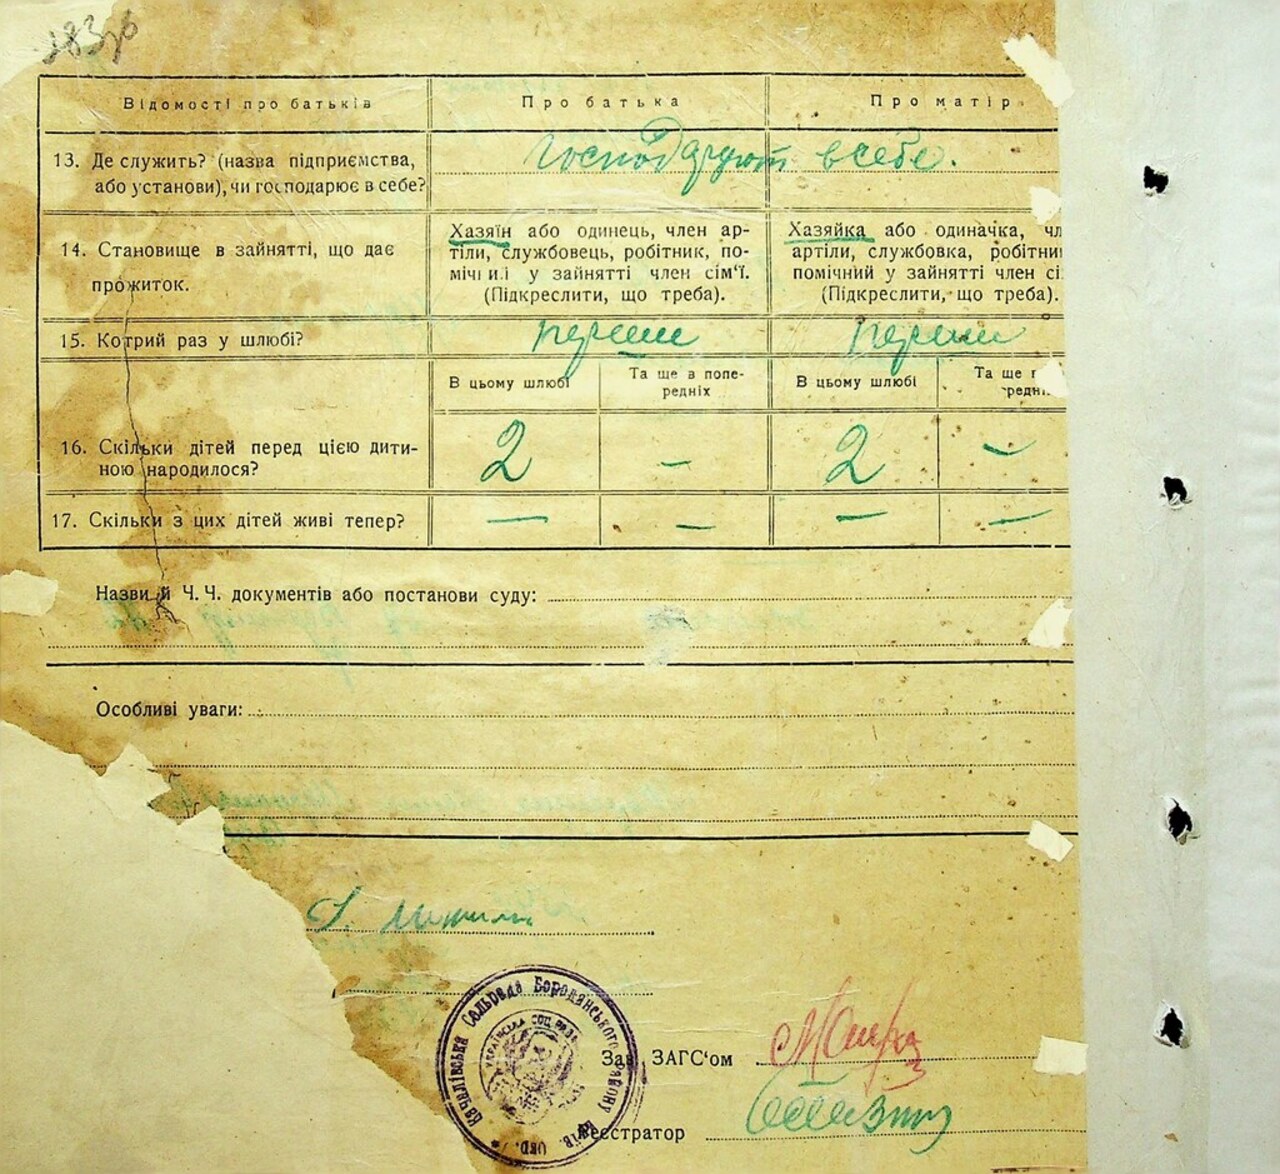 Відомості про батьків
Про батька
Про матір
13. Де служить? (назва підприємства,
або установи), чи господарює в себе?
господарюют в себе.
14. Становище в зайнятті, що дає
прожиток.
Хазяїн або одинець, член ар-
тіли, службовець, робітник, по-
мічний у зайнятті член сім'ї.
(Підкреслити, що треба).
Хазяйка або одиначка, чл
артіли, службовка, робітни
помічний у зайнятті член сі
(Підкреслити, що треба).
15. Котрий раз у шлюбі?
перший
перший
В цьому шлюбі
Та ще в попе-
редніх
В цьому шлюбі
Та ще п
редні
16. Скільки дітей перед цією дити-
ною народилося?
2
–
2
–
17. Скільки з цих дітей живі тепер?
–
–
–
–
Назви й Ч. Ч. документів або постанови суду:
Особливі уваги:
Качалівська Сельрада Бородянського району Київ. Окр.
Українська Соц. Рад.
Зав. ЗАГС'ом
Реєстратор